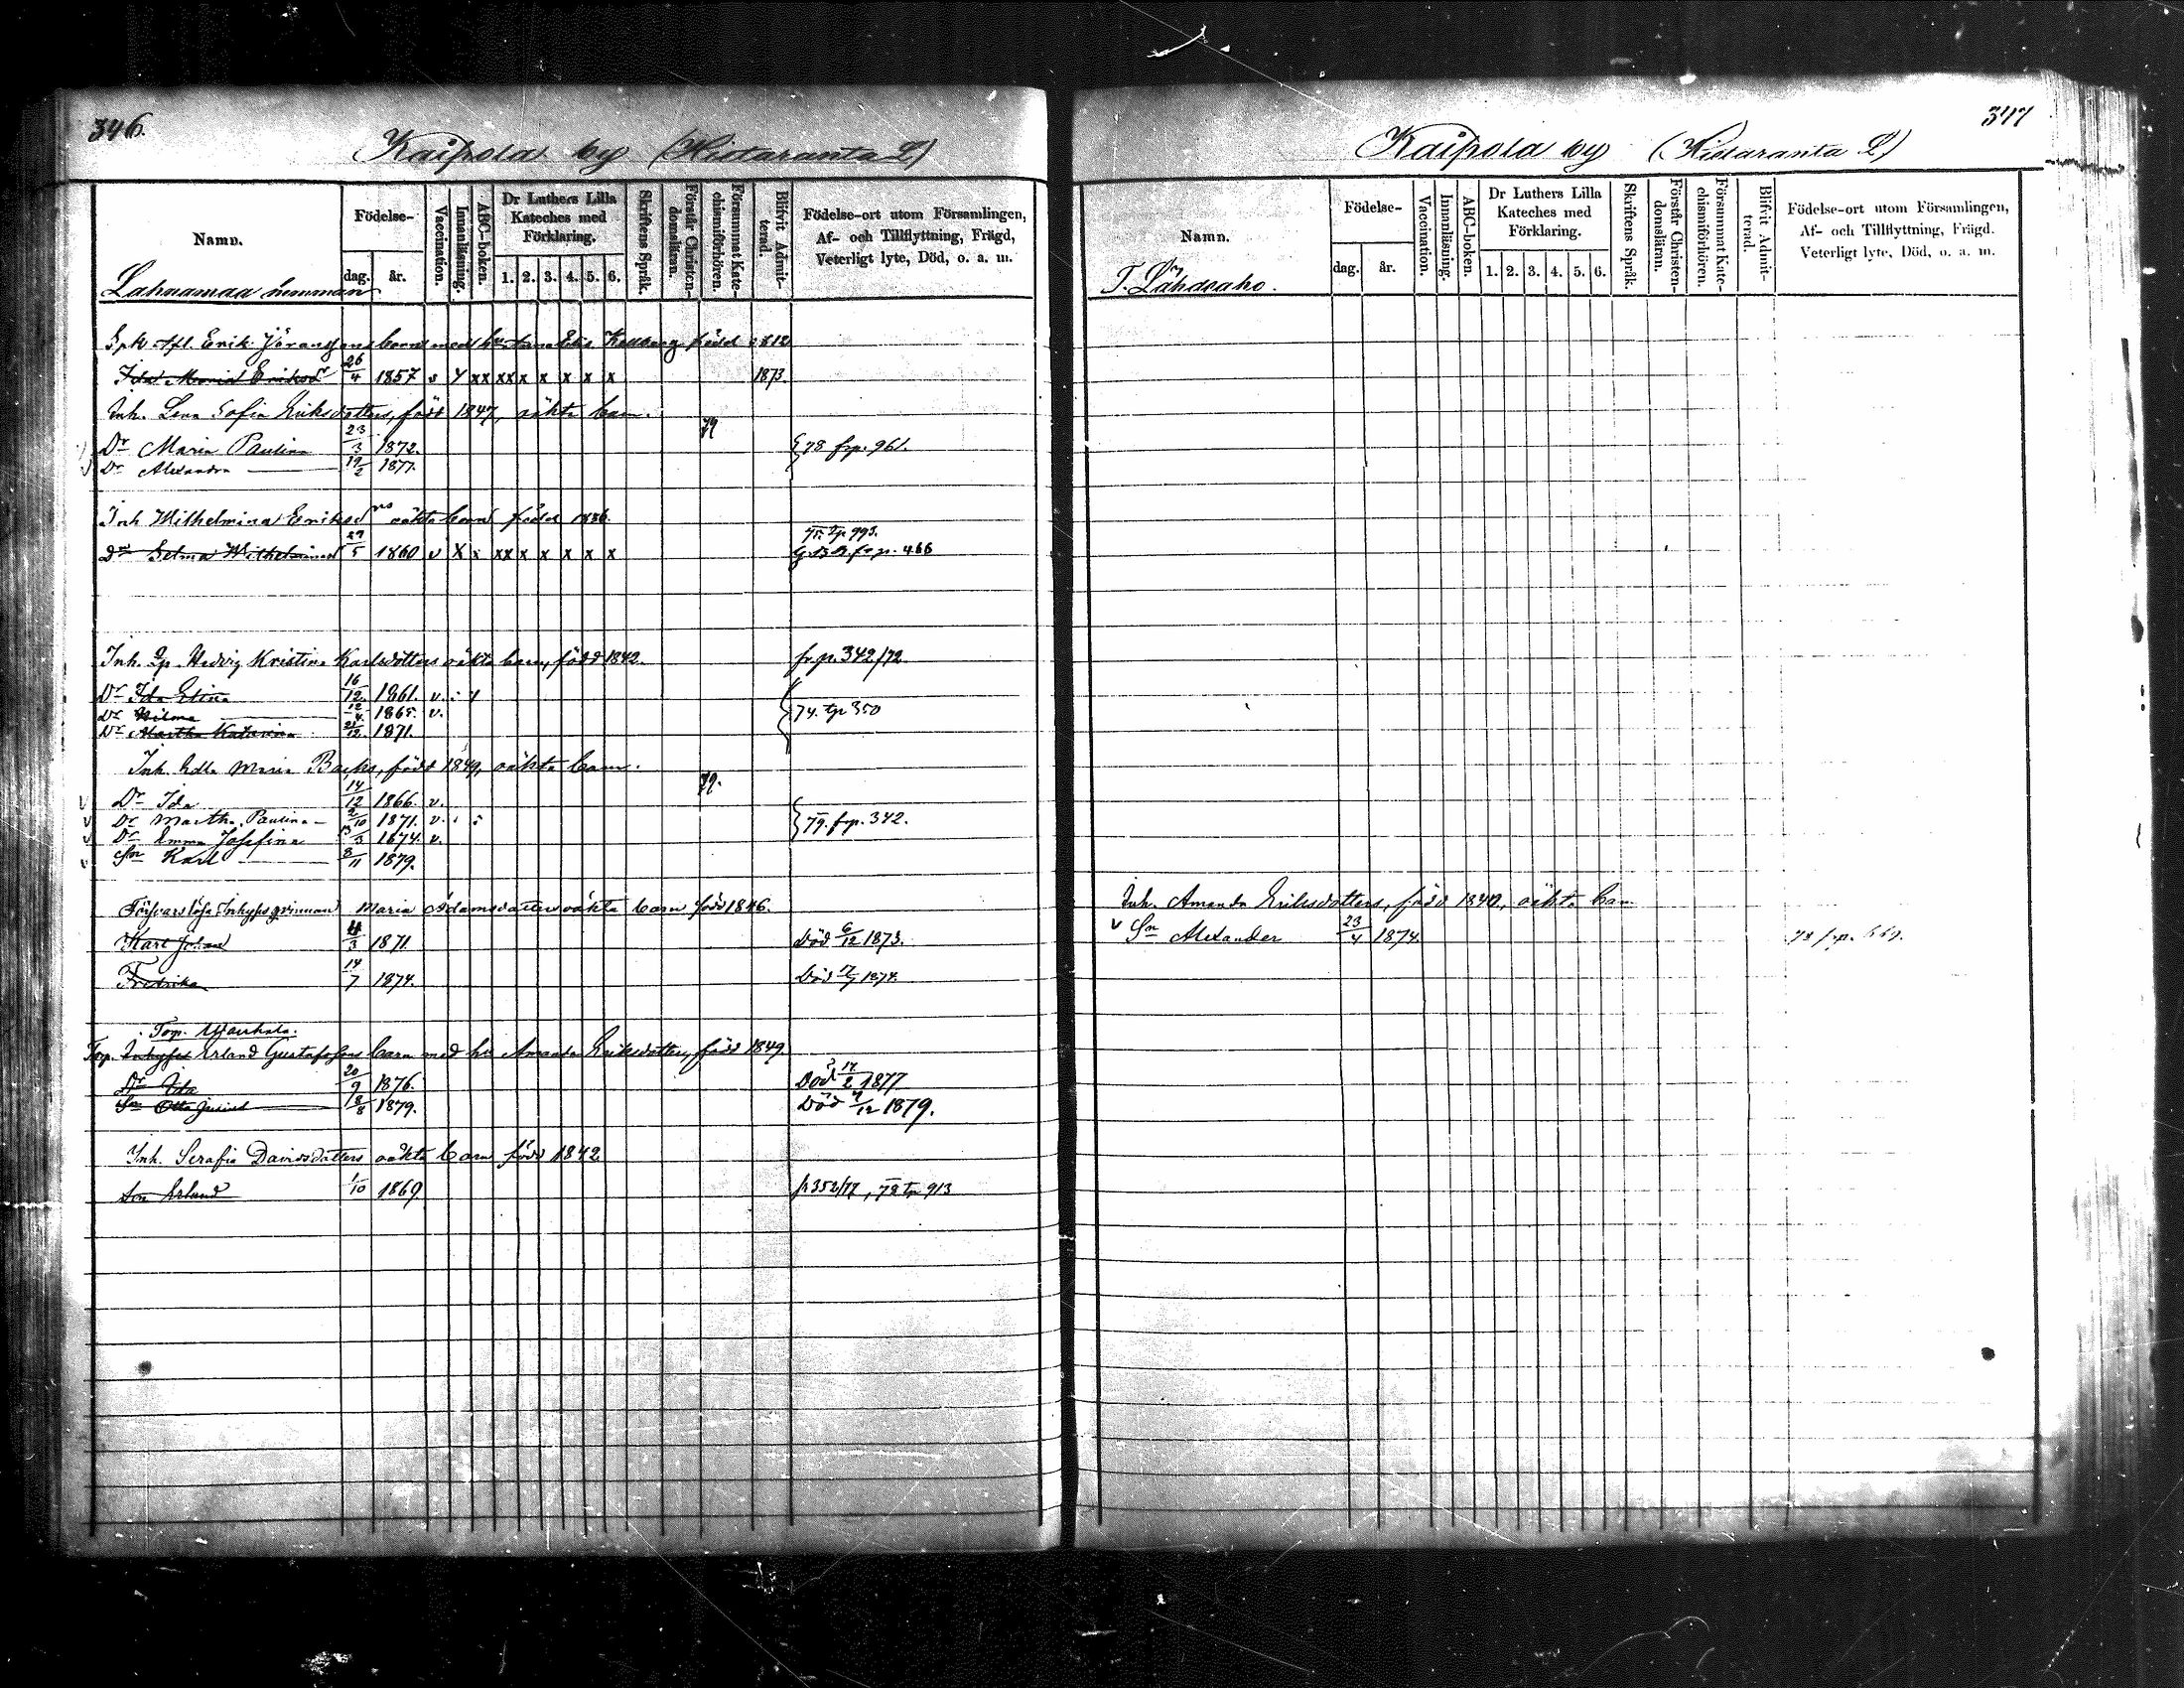 346.
Kaipola by (Hietaranta L)
Namn.
Födelse-
dag.
år.
Vaccination.
Innanläsning.
ABC-boken.
Dr Luthers Lilla
Kateches med
Förklaring.
1. 2. 3. 4. 5. 6.
Skriftens Språk.
Förstår Christen-
domsläran.
Försummat Kate-
chismiförhören.
Blifvit Admit-
terad.
Födelse-ort utom Församlingen,
Af- och Tillflyttning, Frägd,
Veterligt lyte, Död, o. a. m.
Lahnamaa hemman
Erik Jöranssons barn med hu Anna född 1812
Ida Maria Eriksdr 26/4 1857 v Y xx xx x x x x x 1873.
Inh. Lena Sofia Eriksdotters, född 1847, oäkta barn.
79
Dr Maria Paulina 23/3 1872. 78 frp. 961.
Dr Alexandra 19/2 1877.
Inh Wilhelmina Eriksdrs oäkta barn född 1836.
75. tp 993.
Dr Selma Wilhelmina 27/5 1860 v X x xx x x x x x fr p. 466
Inh. Hedvig Kristina Karlsdotters oäkta barn, född 1842. fr. p. 342/72
Dr Ida Elina 16/12 1861. v.
Dr Hilma 12/4 1865. v. 74. tp 350
Dr Martha Katarina 21/12 1871.
Inh. Edla Maria Backs, född 1849, oäkta barn.
79.
Dr Ida 14/12 1866. v.
Dr Martha Paulina 2/10 1871. v. 79. frp. 342.
Dr Emma Josefina 13/3 1874. v.
Sn Karl 8/11 1879.
Försvarslösa Inhyses qvinnan Maria Adamsdotters oäkta barn född 1846.
Karl Johan 4/3 1871 Död 6/12 1873.
Fredrika 14/7 1874. Död 17/7 1874.
Torp.
Torp. Inhyses Erland Gustafssons barn med hu Amanda Eriksdotter, född 1849
Dr Ida 20/9 1876. Död 17/2 1877
Sn Otto 18/8 1879. Död 7/12 1879.
Inh. Serafia Davidsdotters oäkta barn född 1842
Son Erland 1/10 1869 fr 352/77, 78 tp 913
347
Kaipola by (Hietaranta L)
Namn.
Födelse-
dag.
år.
Vaccination.
Innanläsning.
ABC-boken.
Dr Luthers Lilla
Kateches med
Förklaring.
1. 2. 3. 4. 5. 6.
Skriftens Språk.
Förstår Christen-
domsläran.
Försummat Kate-
chismiförhören.
Blifvit Admit-
terad.
Födelse-ort utom Församlingen,
Af- och Tillflyttning, Frägd.
Veterligt lyte, Död, o. a. m.
T. Lahdeaho.
Inh. Amanda Eriksdotters, född 1842, oäkta barn
v Sn Alexander 23/4 1874. 78 frp. 669.